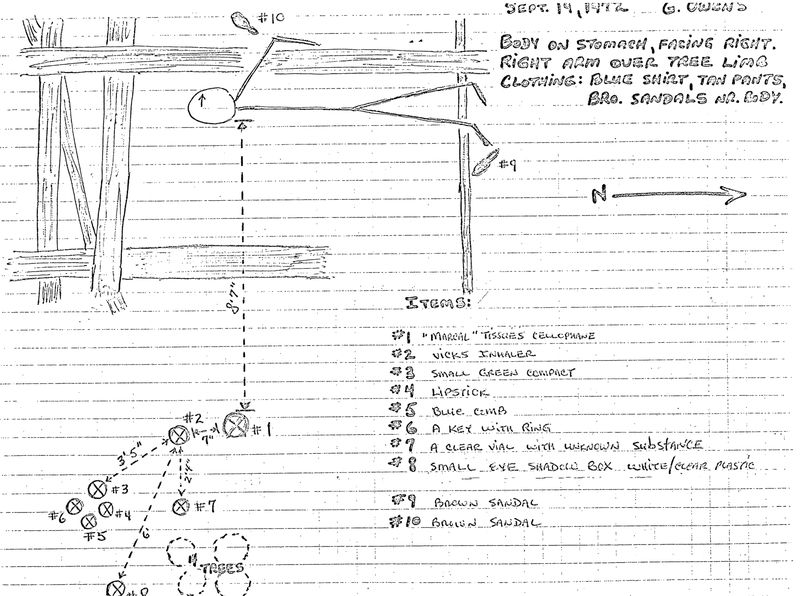 SEPT. 19, 1972 G. OWENS
BODY ON STOMACH, FACING RIGHT.
RIGHT ARM OVER TREE LIMB
CLOTHING: BLUE SHIRT, TAN PANTS,
BRO. SANDALS NR. BODY.
#10
#9
N
8'7"
ITEMS:
#1 "MARCAL" TISSUES CELLOPHANE
#2 VICKS INHALER
#3 SMALL GREEN COMPACT
#4 LIPSTICK
#5 BLUE COMB
#6 A KEY WITH RING
#7 A CLEAR VIAL WITH UNKNOWN SUBSTANCE
#8 SMALL EYE SHADOW BOX WHITE/CLEAR PLASTIC
#9 BROWN SANDAL
#10 BROWN SANDAL
#2
7"
#1
3'5"
#3
#6
#4
#7
#5
6'
TREES
#8